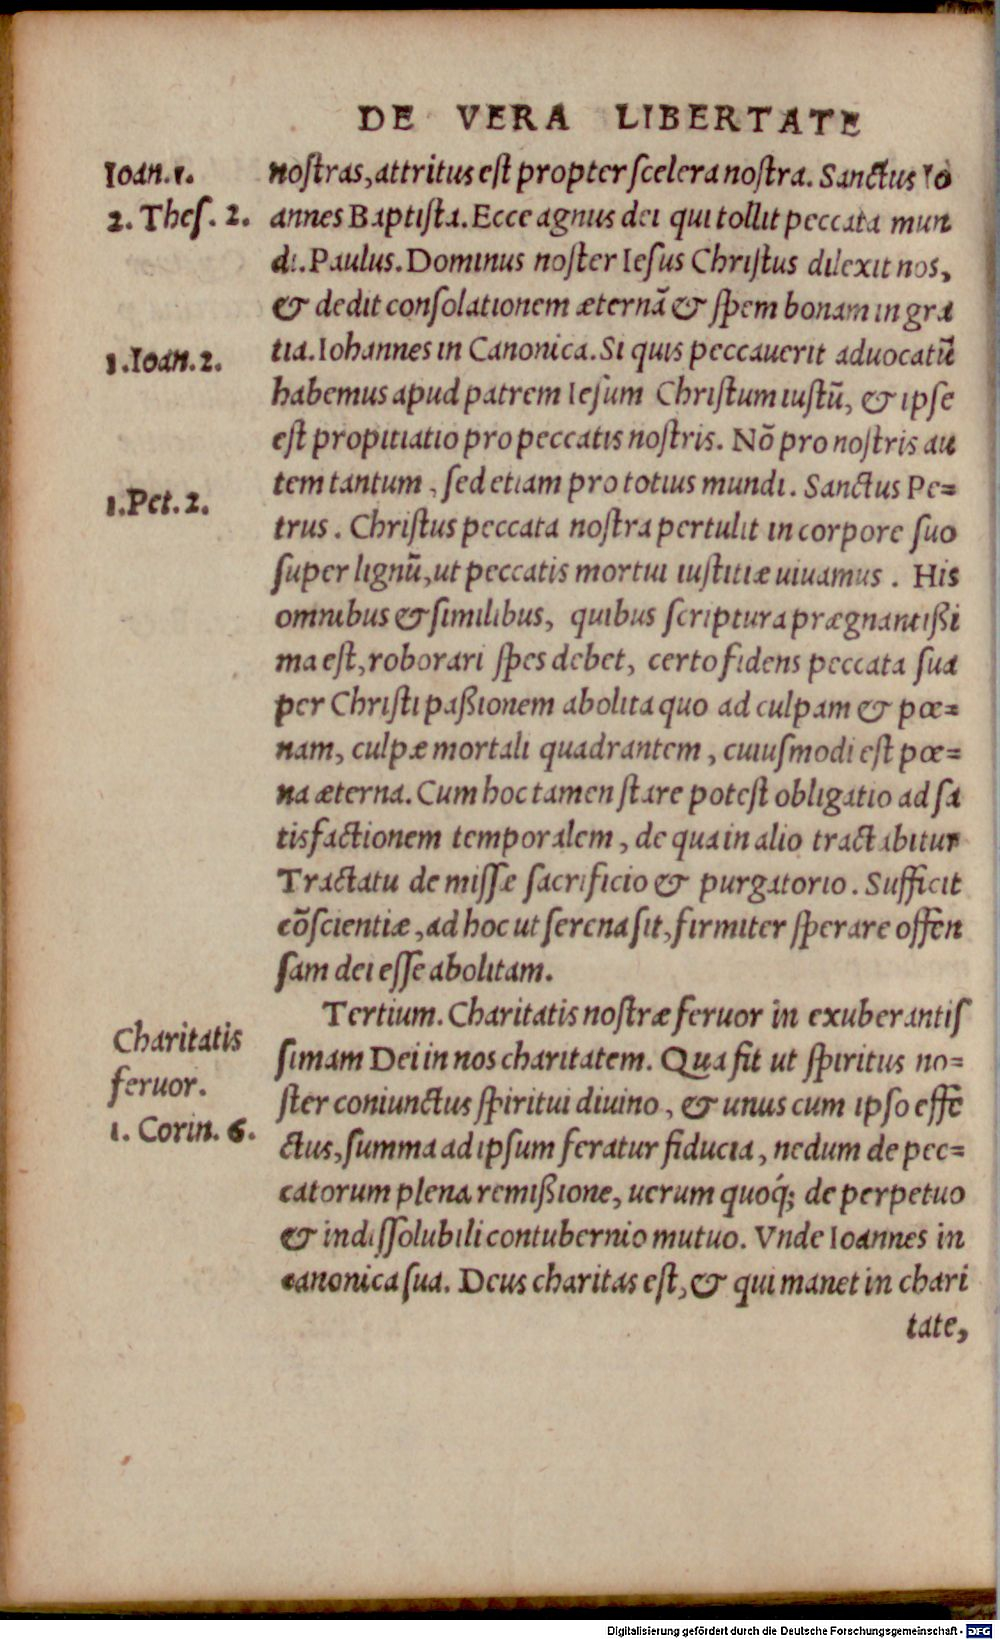 DE VERA LIBERTATE
Ioan. 1.
2. Thes. 2.
nostras, attritus est propter scelera nostra. Sanctus Io
annes Baptista. Ecce agnus dei qui tollit peccata mun
di. Paulus. Dominus noster Iesus Christus dilexit nos,
& dedit consolationem æternã & spem bonam in gra
1. Ioan. 2.
tia. Iohannes in Canonica. Si quis peccauerit aduocatũ
habemus apud patrem Iesum Christum iustũ, & ipse
est propitiatio pro peccatis nostris. Nõ pro nostris au
1. Pet. 2.
tem tantum, sed etiam pro totius mundi. Sanctus Pe=
trus. Christus peccata nostra pertulit in corpore suo
super lignũ, ut peccatis mortui iustitiæ uiuamus. His
omnibus & similibus, quibus scriptura prægnantißi
ma est, roborari spes debet, certo fidens peccata sua
per Christi paßionem abolita quo ad culpam & pœ=
nam, culpæ mortali quadrantem, cuiusmodi est pœ=
na æterna. Cum hoc tamen stare potest obligatio ad sa
tisfactionem temporalem, de qua in alio tractabitur
Tractatu de missæ sacrificio & purgatorio. Sufficit
cõscientiæ, ad hoc ut serena sit, firmiter sperare offen
sam dei esse abolitam.
Charitatis
feruor.
1. Corin. 6.
Tertium. Charitatis nostræ feruor in exuberantis
simam Dei in nos charitatem. Qua fit ut spiritus no=
ster coniunctus spiritui diuino, & unus cum ipso effe
ctus, summa ad ipsum feratur fiducia, nedum de pec=
catorum plena remißione, uerum quoq́; de perpetuo
& indissolubili contubernio mutuo. Vnde Ioannes in
canonica sua. Deus charitas est, & qui manet in chari
tate,
Digitalisierung gefördert durch die Deutsche Forschungsgemeinschaft - DFG